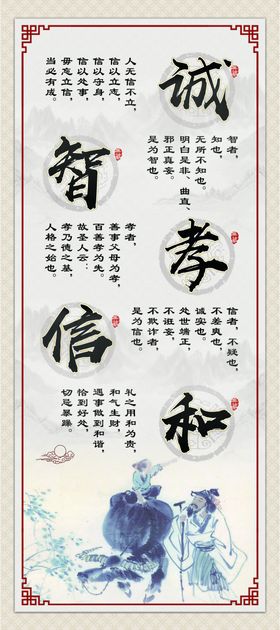 诚
人无信不立，
信以立志，
信以守身，
信以处事，
毋忘立信，
当必有成。
智
智者，
知也，
无所不知也。
明白是非、曲直、
邪正真妄，
是为智也。
孝
孝者，
善事父母为孝，
百善孝为先。
故圣人云：
孝乃德之基，
人格之始也。
信
信者，不疑也，
不差爽也，
诚实也。
处世端正，
不诳妄，
不欺诈者，
是为信也。
和
礼之用和为贵，
和气生财，
遇事做到和谐，
恰到好处，
切忌暴躁。